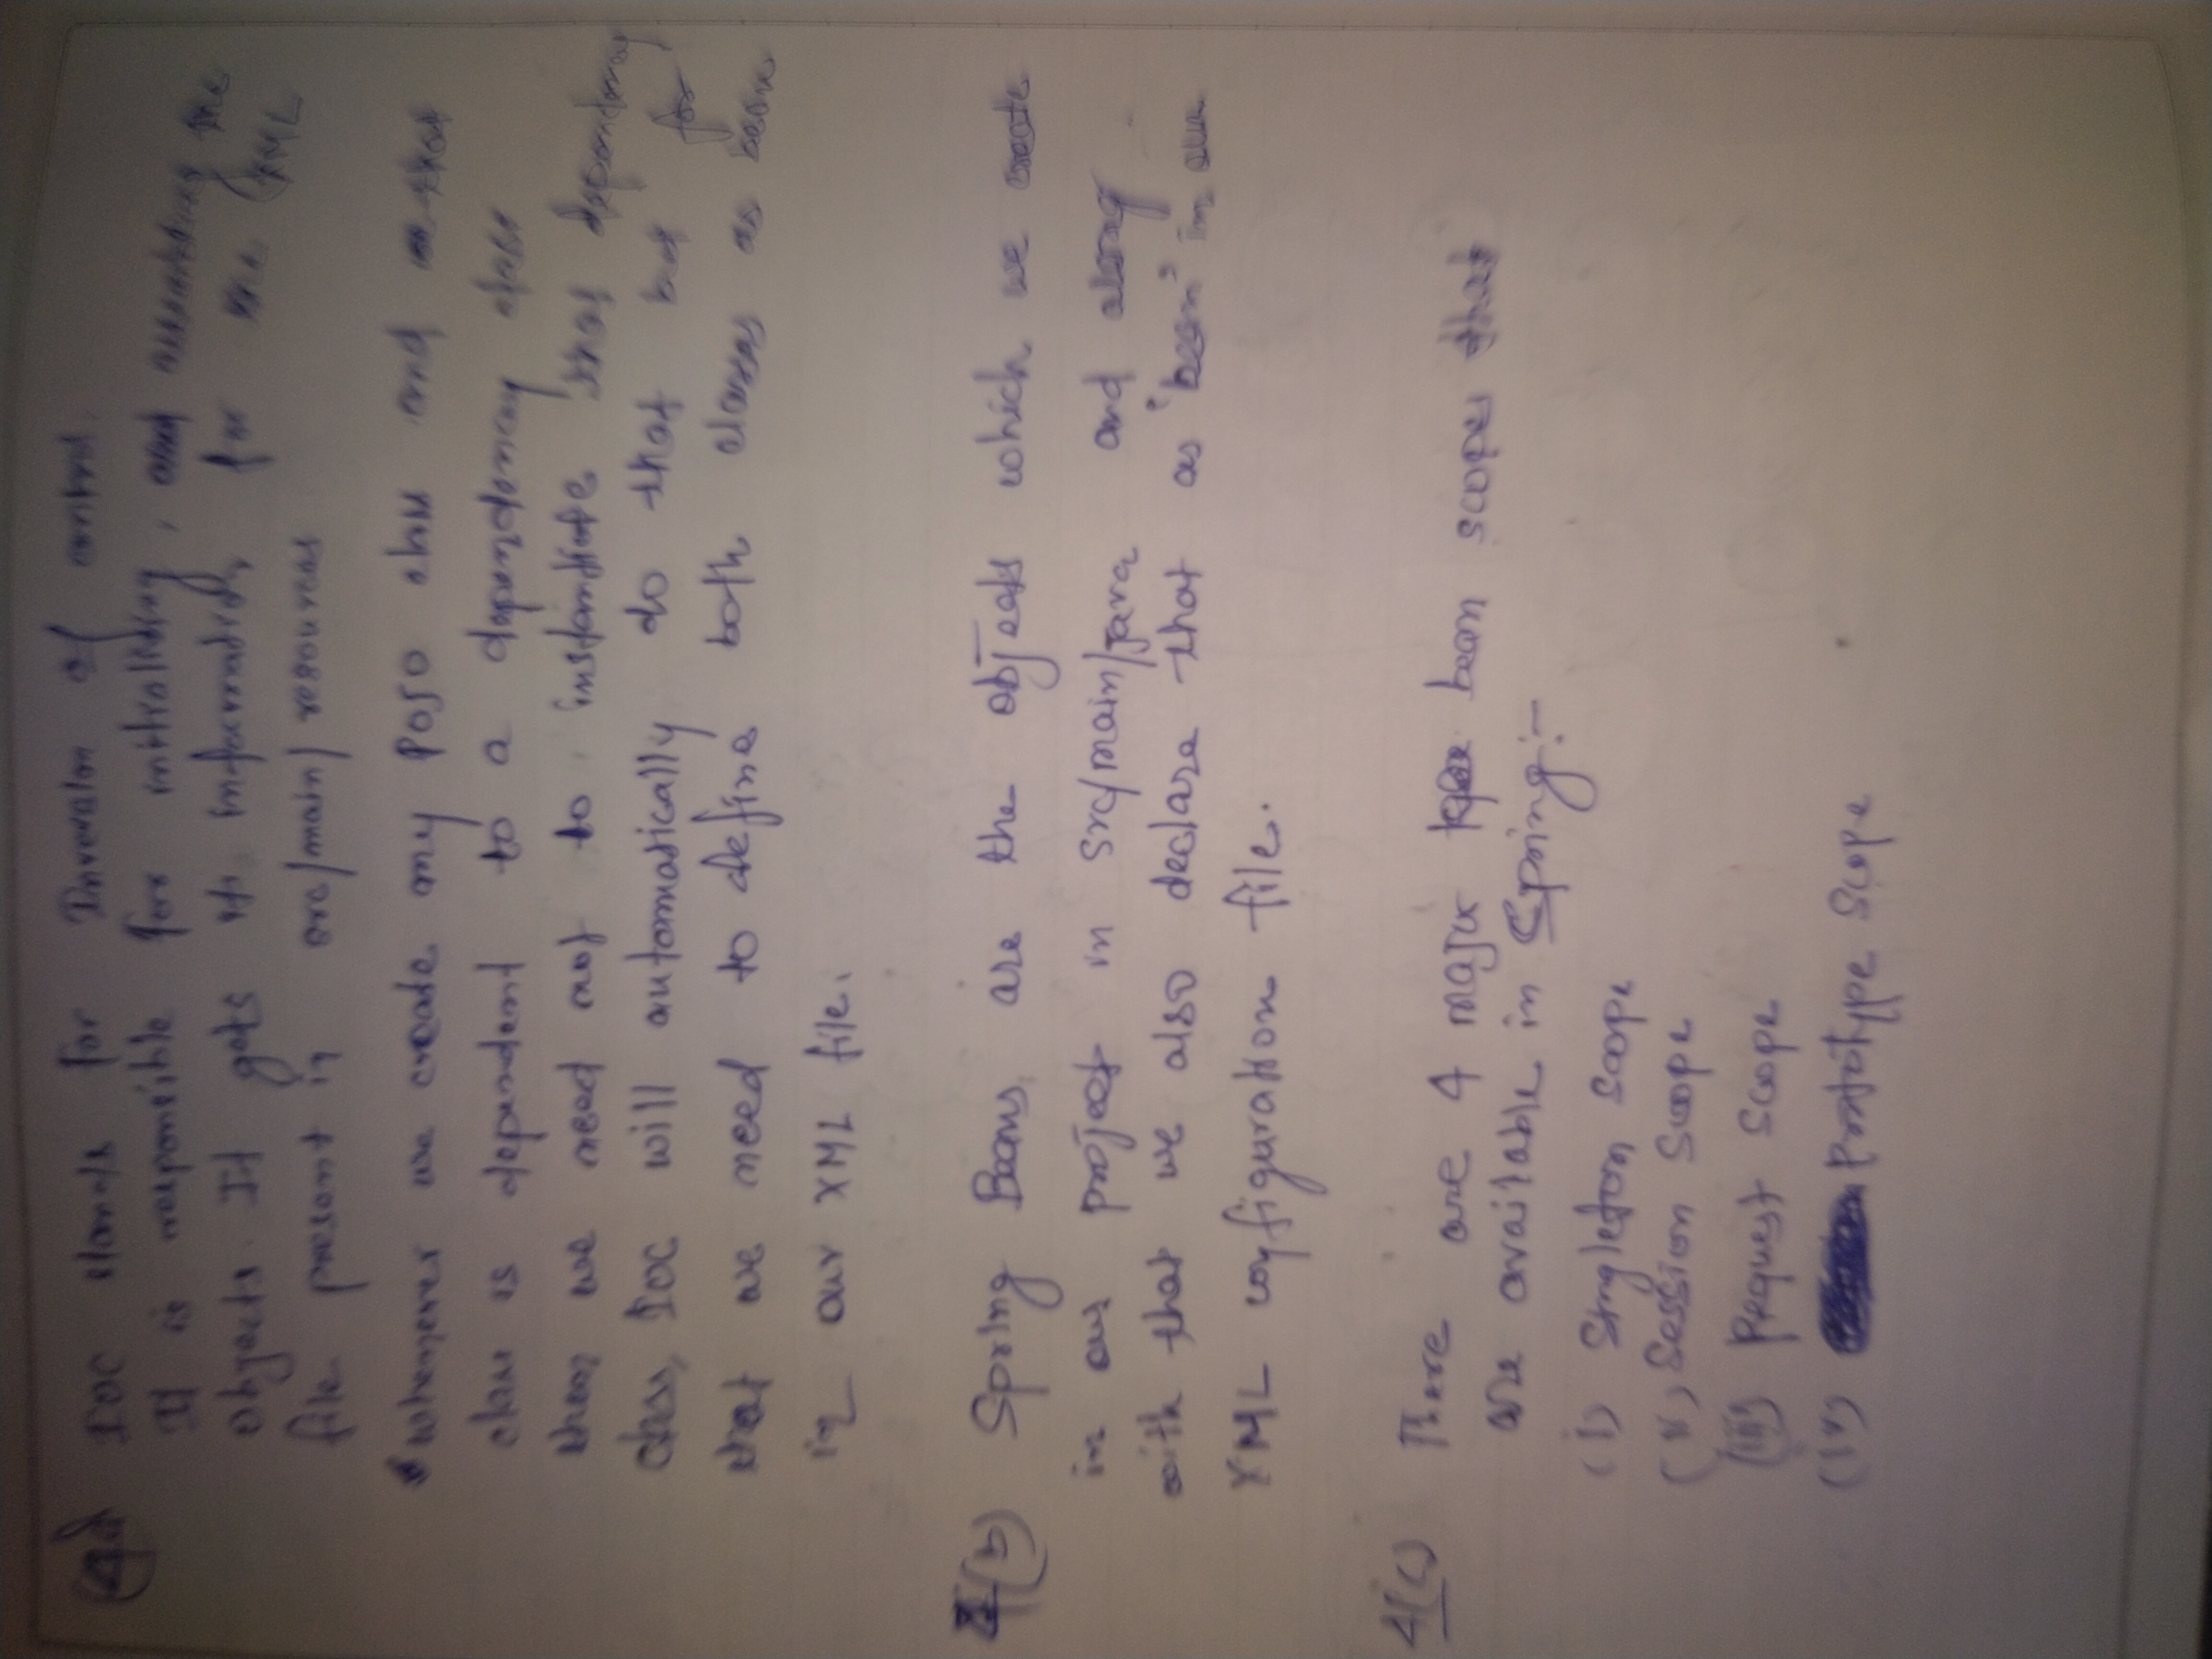 IOC stands for Inversion of control.
It is responsible for initializing, and assembling the
objects. It gets it information for the XML
file present in src/main/resources
whenever we create any POJO class and that
class is dependent to a dependency class
then we need not to instantiate that dependency
class, IOC will automatically do that but for
that we need to define both classes as bean
in our XML file.
4(b) Spring Beans, are the objects which we create
in our project in src/main/java and along
with that we also declare that as 'bean' in our
XML configuration file.
4(c) There are 4 major bean scopes that
are available in Spring:-
(i) Singleton Scope
(ii) Session Scope
(iii) Request Scope
(iv) Prototype Scope